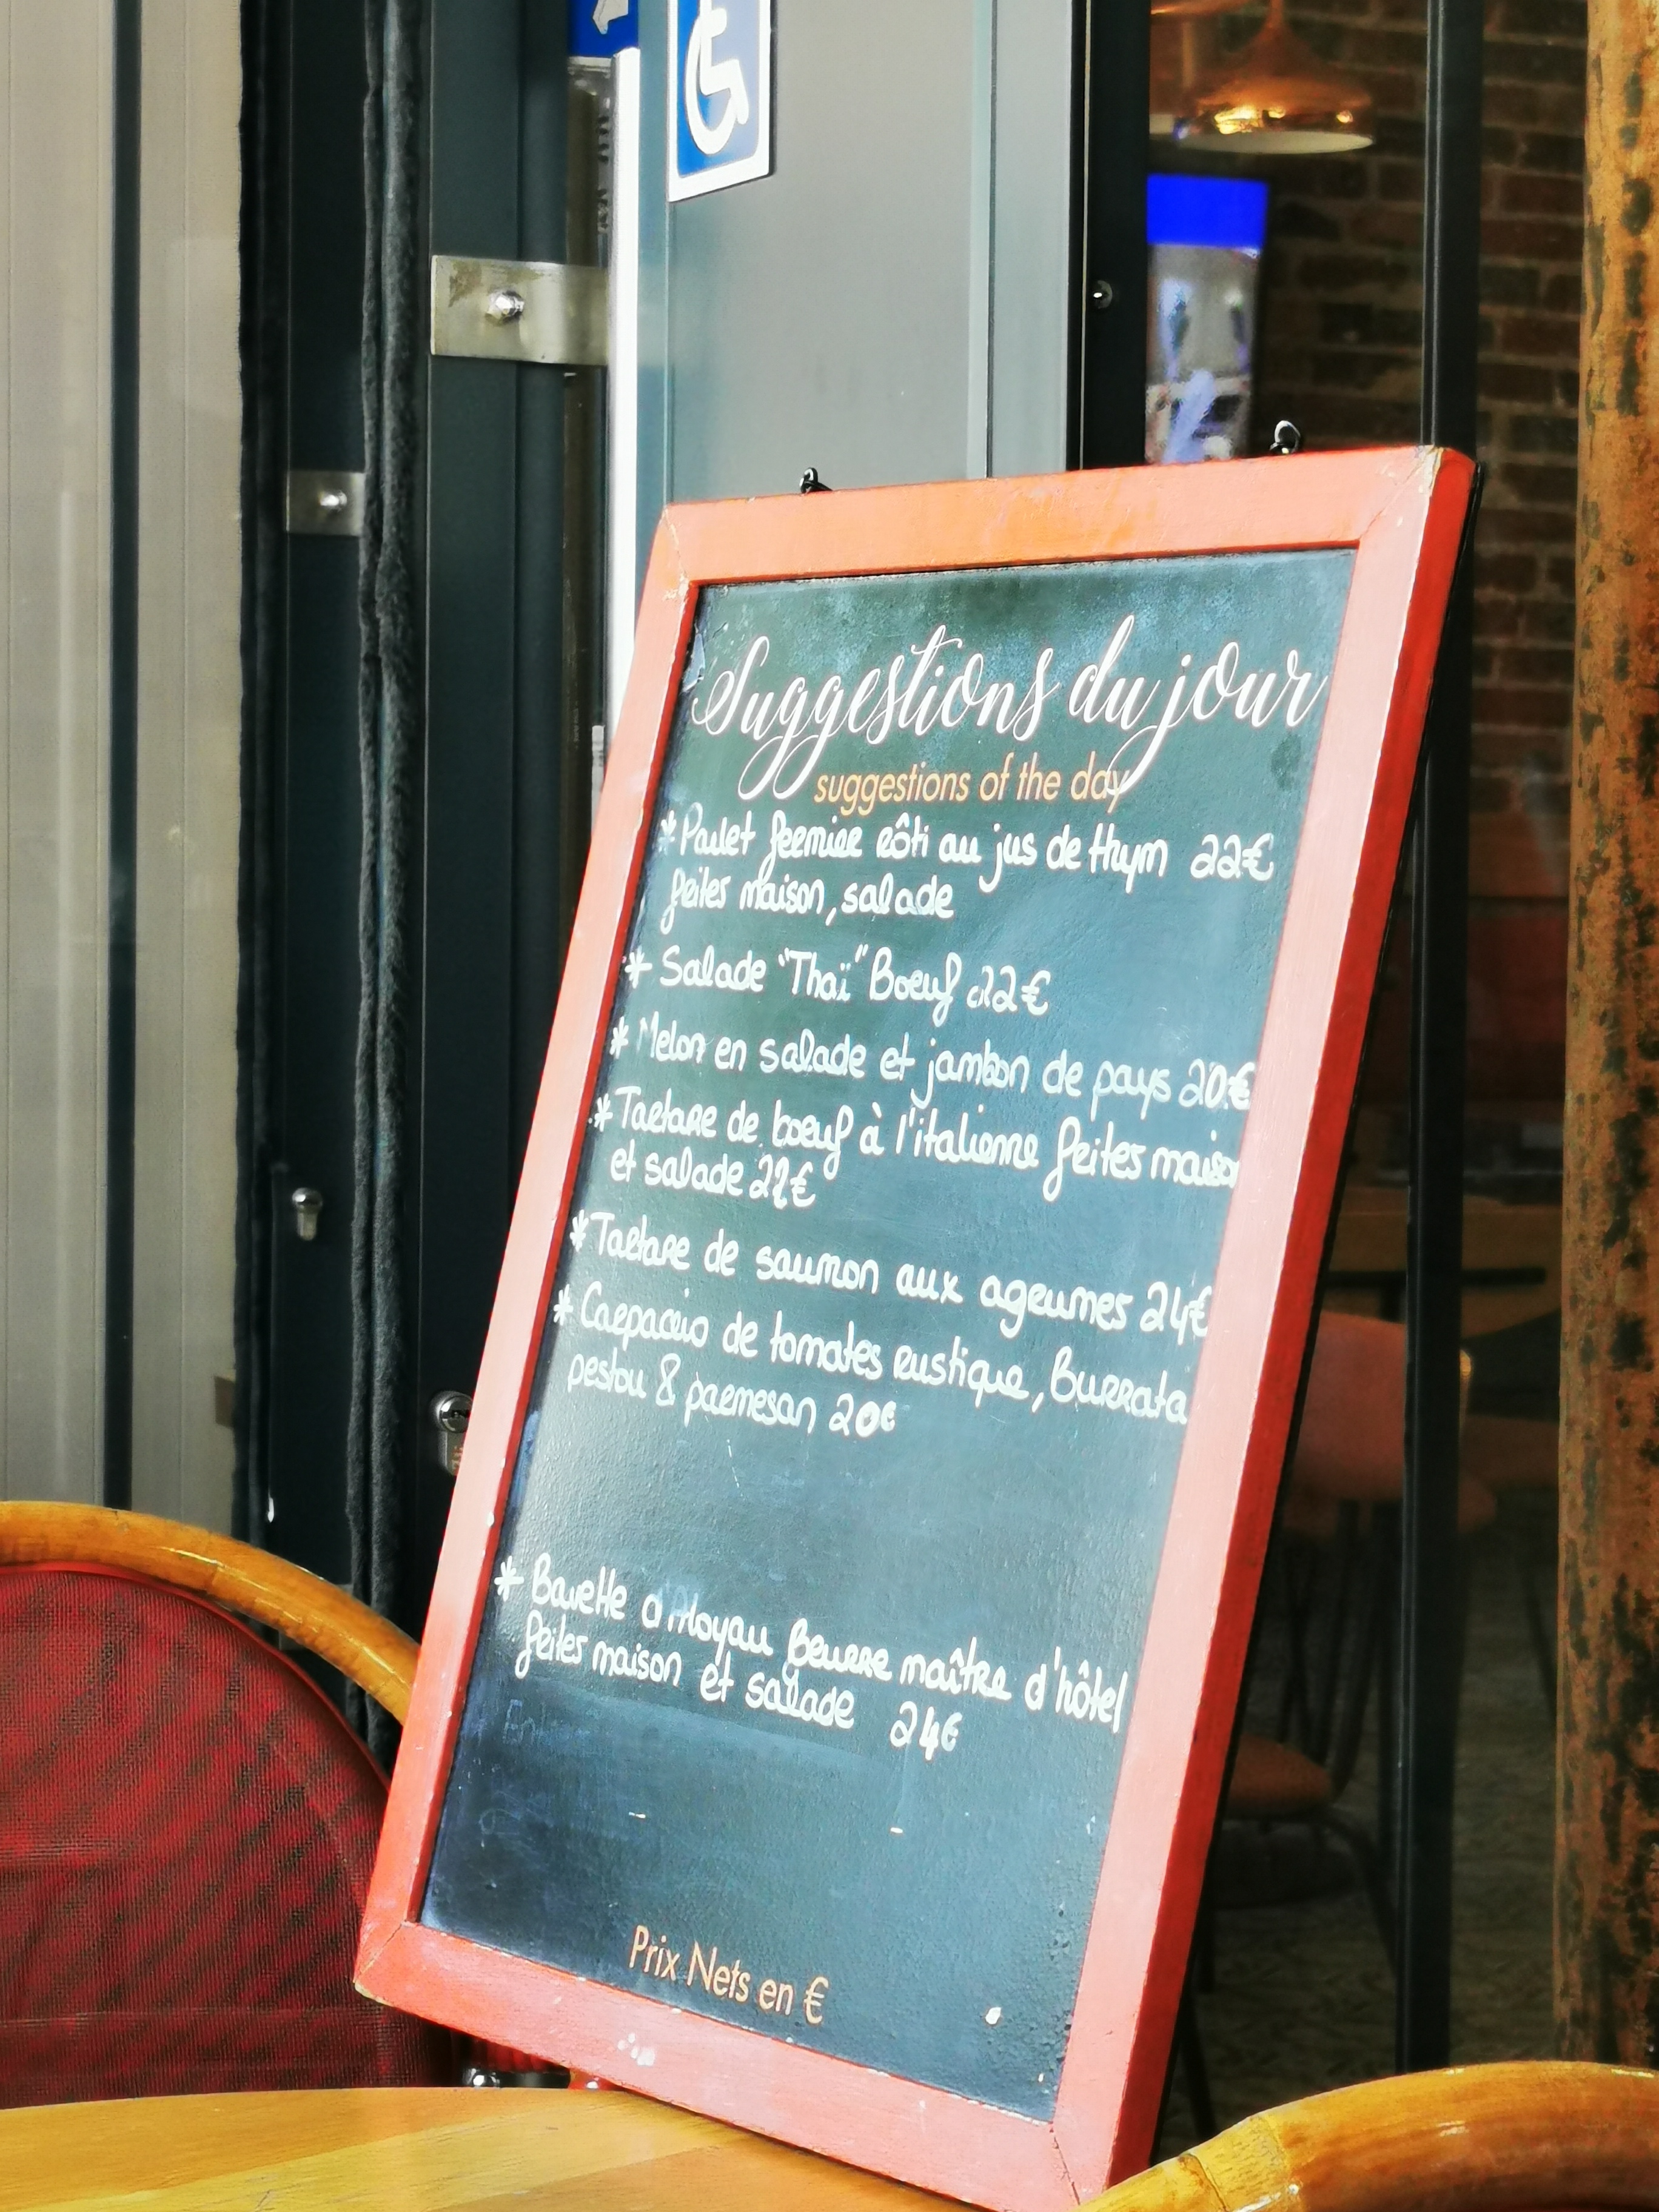 Suggestions du jour
suggestions of the day
* Poulet fermier rôti au jus de thym 22€
frites maison, salade
* Salade "Thaï" Boeuf 22€
* Melon en salade et jambon de pays 20€
* Tartare de boeuf à l'italienne frites maison
et salade 22€
* Tartare de saumon aux agrumes 24€
* Carpaccio de tomates rustique, Burrata
pestou & parmesan 20€
* Bavette d'Aloyau Beurre maître d'hôtel
frites maison et salade 24€
Prix Nets en €